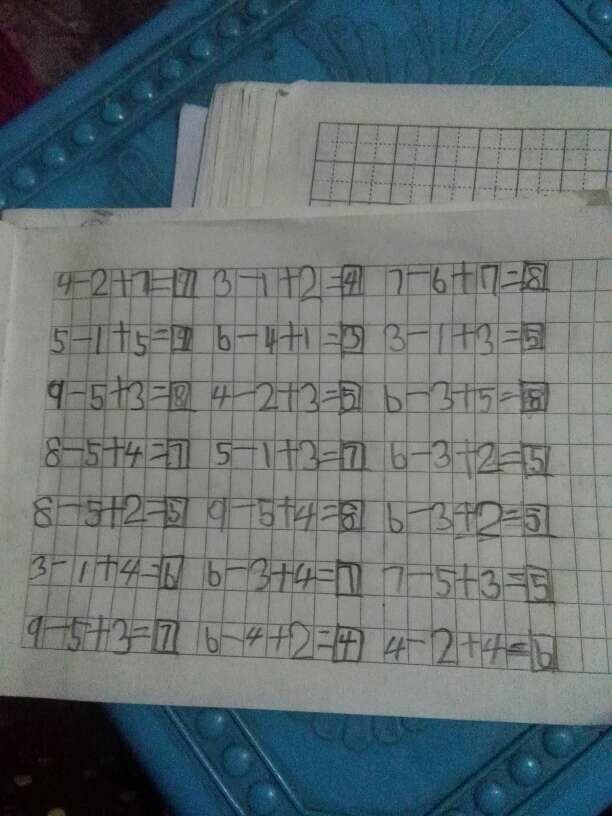 4-2+7=9 3-1+2=4 7-6+7=8
5-1+5=9 6-4+1=3 3-1+3=5
9-5+3=8 4-2+3=5 6-3+5=8
8-5+4=7 5-1+3=7 6-3+2=5
8-5+2=5 9-5+4=8 6-3+2=5
3-1+4=6 6-3+4=7 7-5+3=5
9-5+3=7 6-4+2=4 4-2+4=6